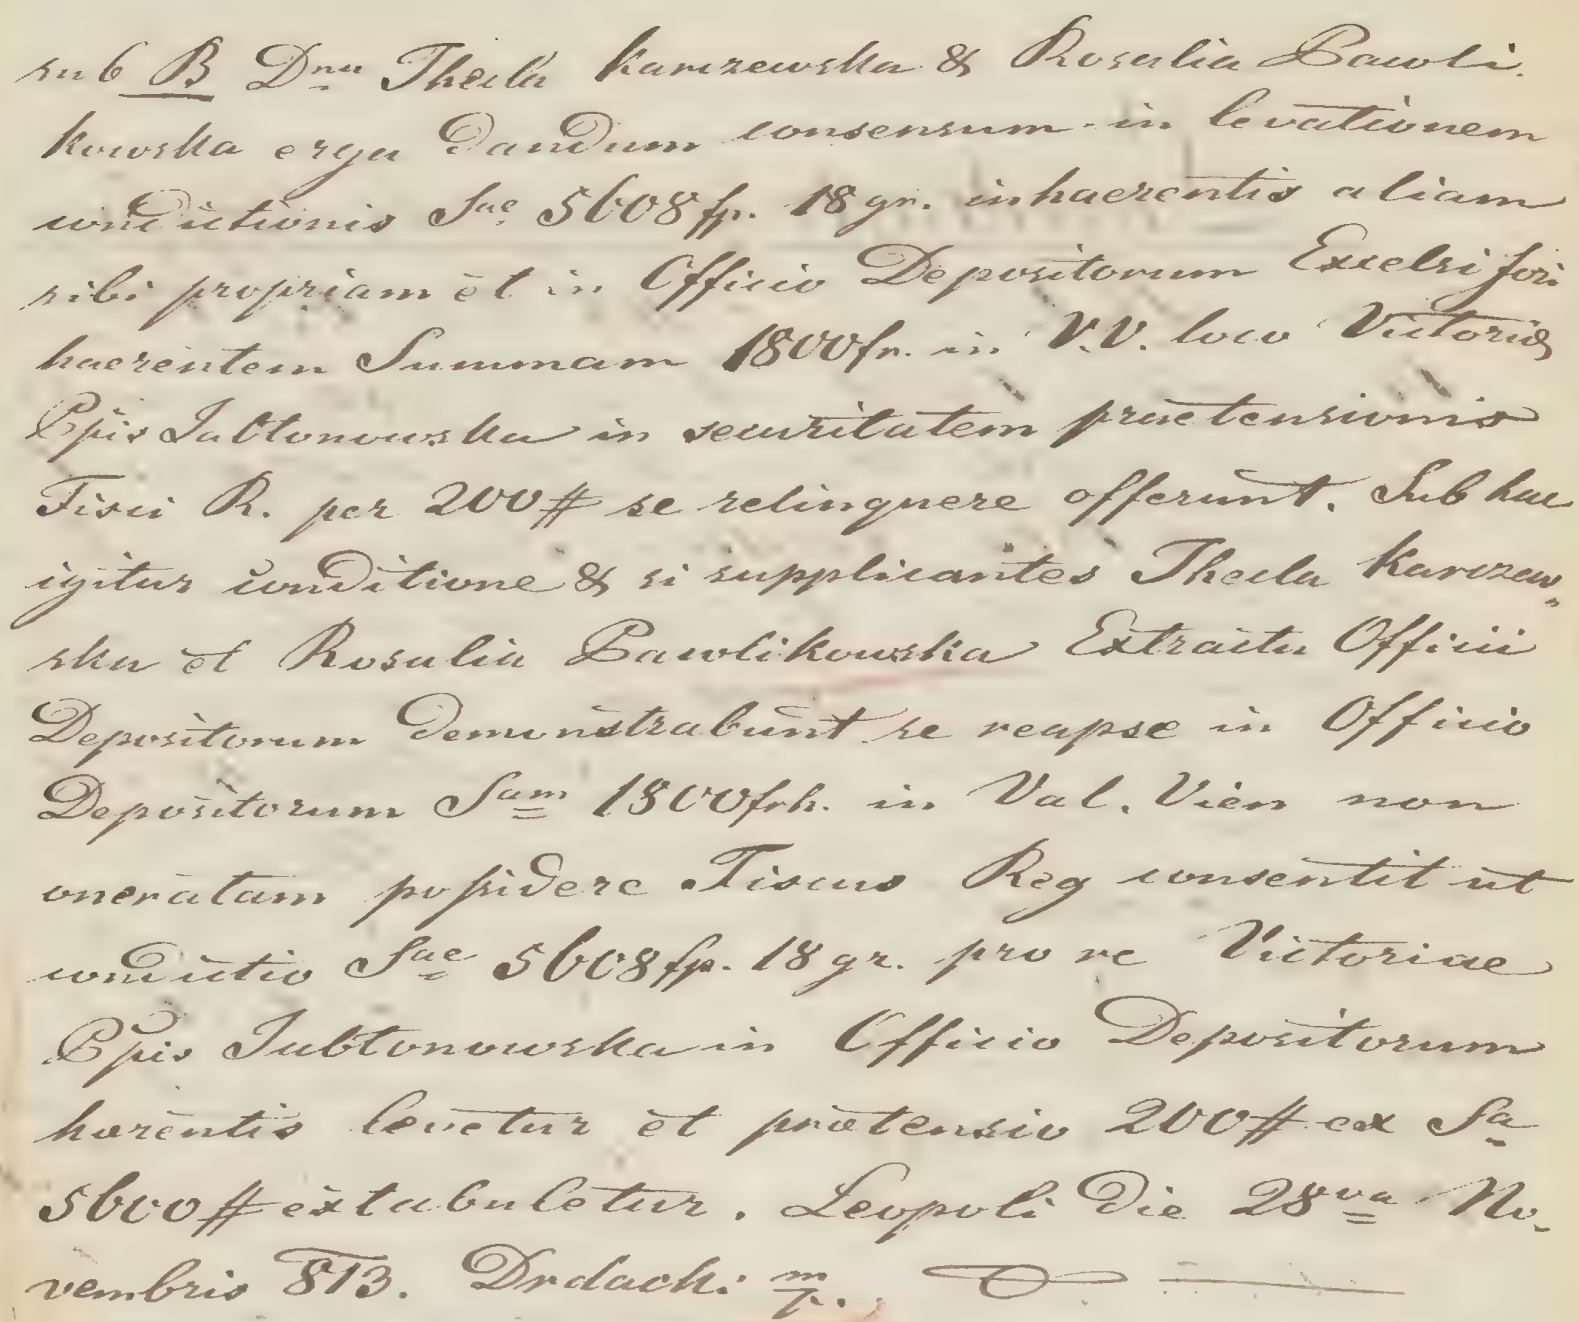 sub B Dnu Thecla Karczewska & Rosalia Pawli-
kowska erga dandum consensum in levationem
conductionis Sae 5608 fp. 18 gr. inhaerentis aliam
sibi propriam et in Officio Depositorum Excelsi fori
haerentem Summam 1800 fr. in V.V. loco Victoriae
Ppis Jabłonowska in securitatem praetensionis
Fisci R. per 200 # se relinquere offerunt. Sub hac
igitur conditione & si supplicantes Thecla Karczew„
ska et Rosalia Pawlikowska Extractu Officii
Depositorum demonstrabunt se reapse in Officio
Depositorum Sam 1800 frh. in Val. Vien non
oneratam possidere Fiscus Reg consentit ut
conductio Sae 5608 fp. 18 gr. pro re Victoriae
Ppis Jabłonowska in Officio Depositorum
haerentis levetur et praetensio 200 # ex Sa
5600 # extabuletur. Leopoli Die 28va No-
vembris 813. Drdacki m/p.